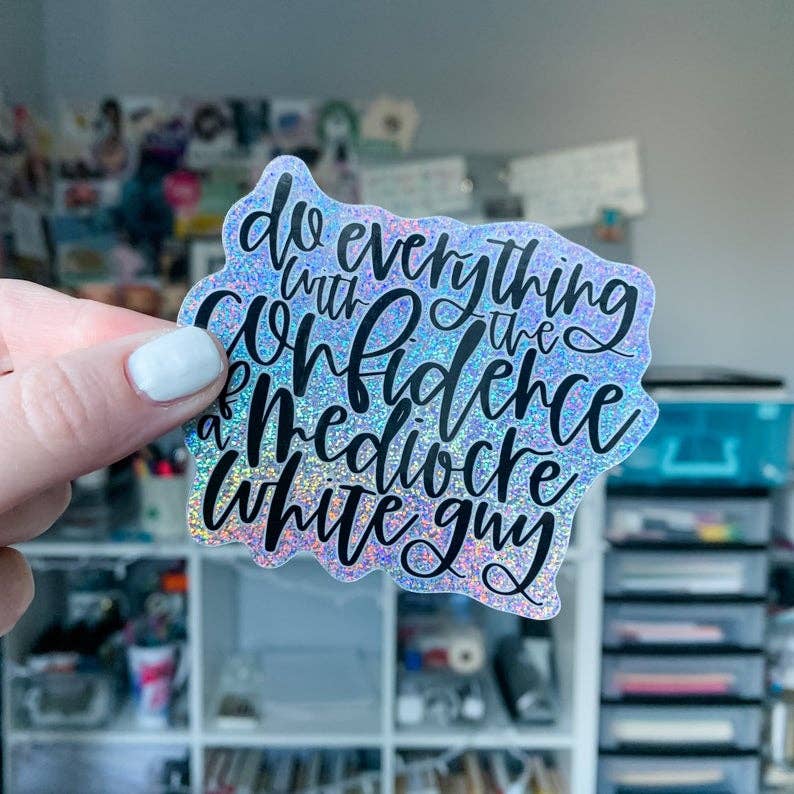 do everything
with the
confidence
of a mediocre
white guy